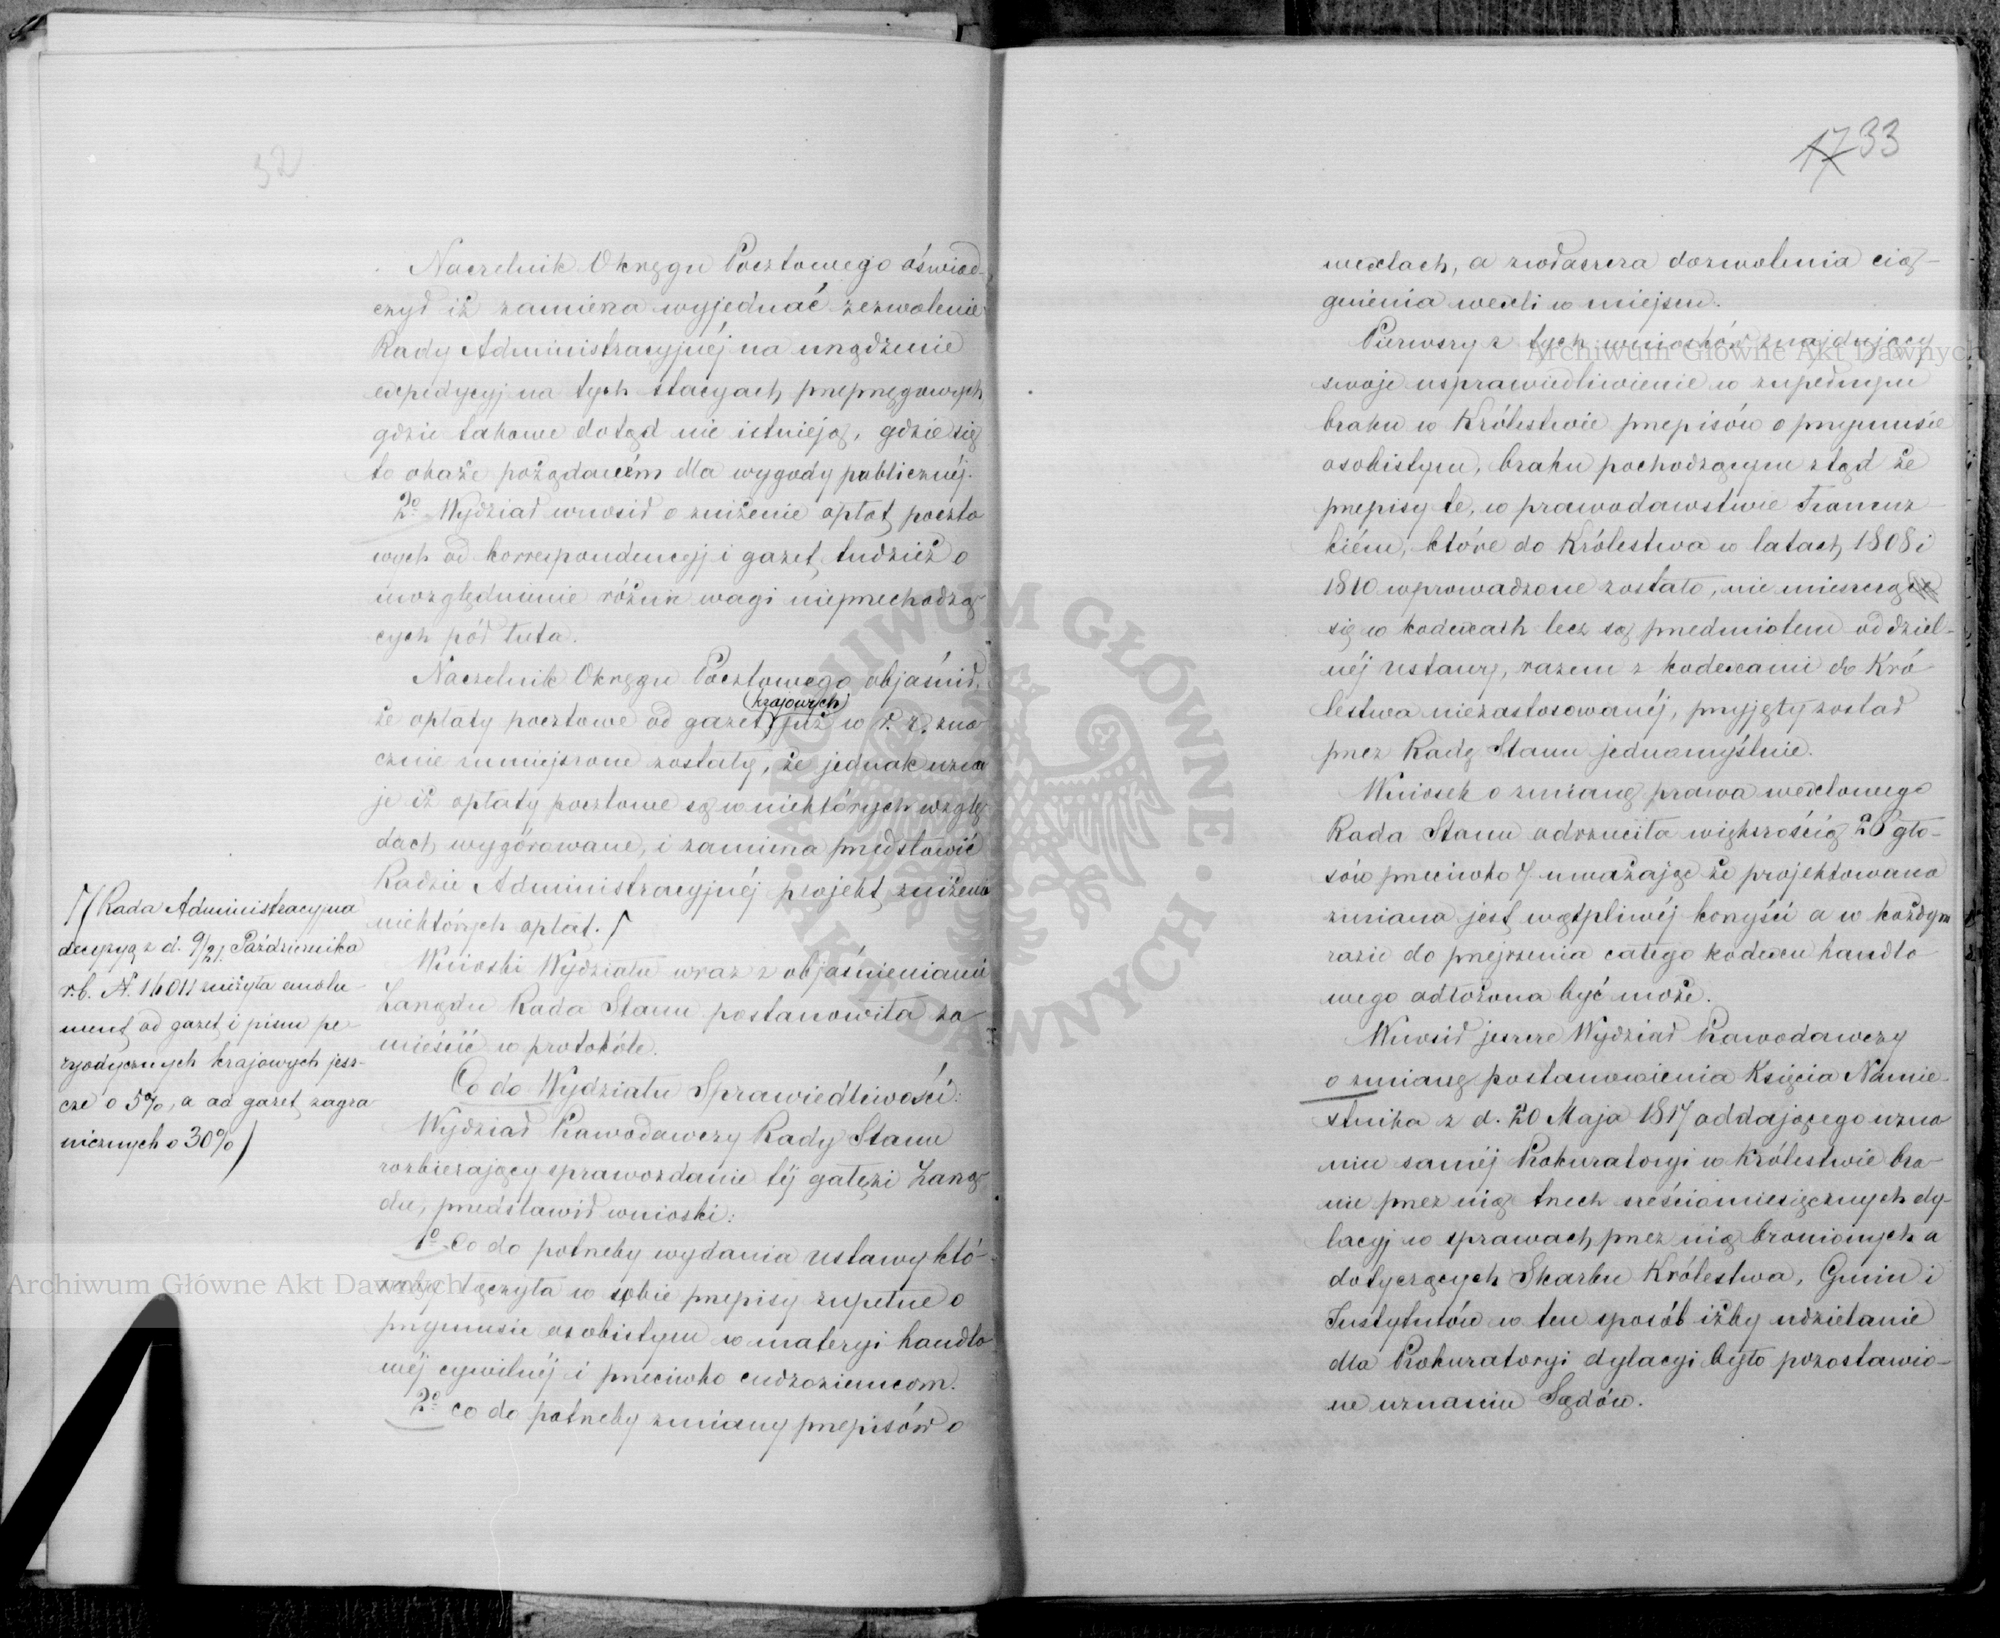 32
Naczelnik Okręgu Pocztowego oświad-
czył iż zamierza wyjednać zezwolenie
Rady Administracyjnéj na urządzenie
expedycyj na tych stacyach przeprzęgowych
gdzie takowe dotąd nie istnieją, gdzie się
to okaże pożądaném dla wygody publicznéj.
2o Wydział wnosił o zniżenie opłat poczto
wych od korrespondencyj i gazet tudzież o
uwzględnienie różnic wagi nieprzechodzą
cych pół łuta.
Naczelnik Okręgu Pocztowego objaśnił,
krajowych
że opłaty pocztowe od gazet już w r. z. zna
cznie zmniejszone zostały, że jednak uzna
je iż opłaty pocztowe są w niektórych wzglę
dach wygórowane, i zamierza przedstawić
Radzie Administracyjnéj projekt zniżenia
niektórych opłat.
[/Rada Administracyjna
decyzyą z d. 9/21. Października
r.b. N. 16011 zniżyła emolu-
ment od gazet i pism pe-
ryodycznych krajowych jesz-
cze o 5%, a od gazet zagra
nicznych o 30%/
Wnioski Wydziału wraz z objaśnieniami
Zarządu Rada Stanu postanowiła za
mieścić w protokóle.
Co do Wydziału Sprawiedliwości:
Wydział Prawodawczy Rady Stanu
rozbierający sprawozdanie téj gałęzi Zarzą
du, przedstawił wnioski:
1o Co do potrzeby wydania ustawy któ-
raby łączyła w sobie przepisy zupełne o
przymusie osobistym w materyi handlo
wéj cywilnéj i przeciwko cudzoziemcom.
2o co do potrzeby zmiany przepisów o
17 33
wexlach, a zwłaszcza dozwolenia cią-
gnienia wexli w miejscu.
Pierwszy z tych wniosków znajdujący
swoje usprawiedliwienie w zupełnym
braku w Królestwie przepisów o przymusie
osobistym, braku pochodzącym ztąd że
przepisy te, w prawodawstwie Francuz-
kiém, które do Królestwa w latach 1808 i
1810 wprowadzone zostało, nie mieszczą
się w kodexach lecz są przedmiotem oddziel-
néj ustawy, razem z kodexami do Kró-
lestwa niezastosowanéj, przyjęty został
przez Radę Stanu jednomyślnie.
Wniosek o zmianę prawa wexlowego
Rada Stanu odrzuciła większością 20 gło-
sów przeciwko 7 uważając że projektowana
zmiana jest wątpliwéj korzyści a w każdym
razie do przejrzenia całego kodexu handlo
wego odłożona być może.
Wnosił jeszcze Wydział Prawodawczy
o zmianę postanowienia Księcia Namie-
stnika z d. 20 Maja 1817 oddającego uzna
niu saméj Prokuratoryi w Królestwie bra-
nie przez nią trzech sześciomiesięcznych dy-
lacyj w sprawach przez nią bronionych a
dotyczących Skarbu Królestwa, Gmin i
Instytutów w ten sposób iżby udzielanie
dla Prokuratoryi dylacyi było pozostawio-
ne uznaniu Sądów.
Archiwum Główne Akt Dawnych
Archiwum Główne Akt Dawnych
ARCHIWUM GŁÓWNE · AKT DAWNYCH ·